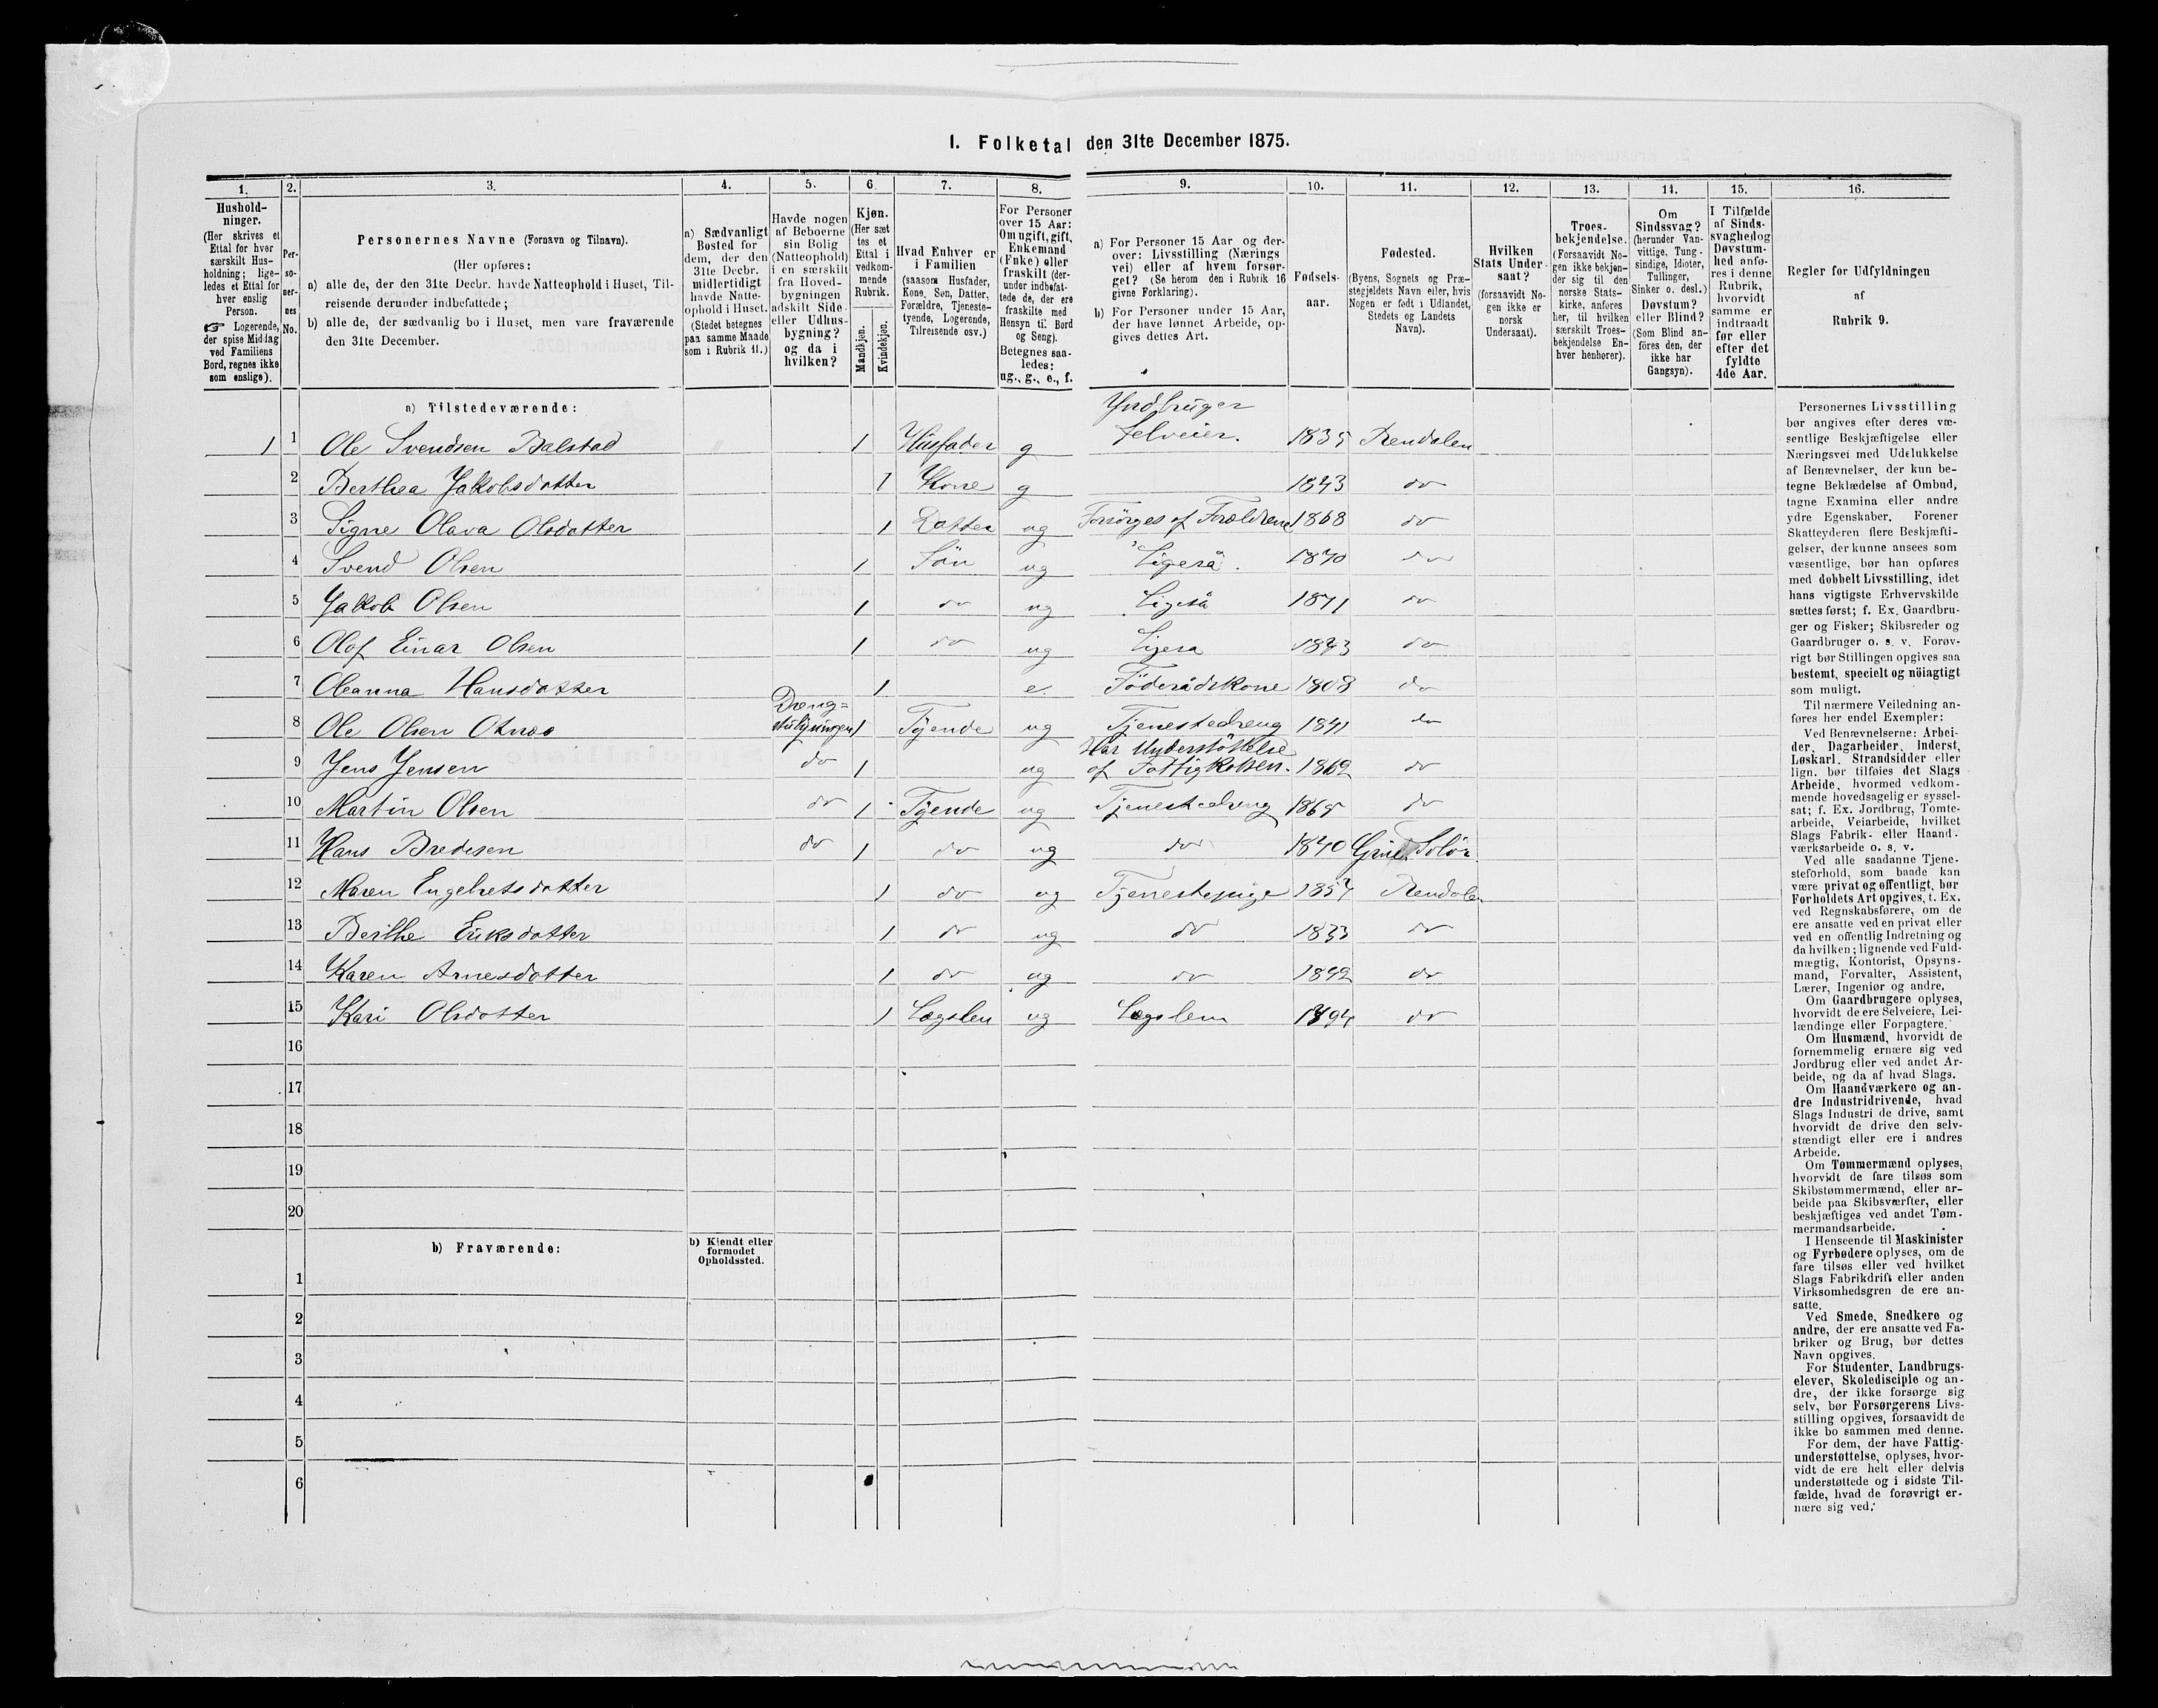 I. Folketal den 31te December 1875.
1. 2. 3. 4. 5. 6. 7. 8. 9. 10. 11. 12. 13. 14. 15. 16.
Hushold-
ninger.
(Her skrives et
Ettal for hver
særskilt Hus-
holdning; lige-
ledes et Ettal for
hver enslig
Person.
☞ Logerende,
der spise Middag
ved Familiens
Bord, regnes ikke
som enslige).
Per-
so-
ner-
nes
No.
Personernes Navne (Fornavn og Tilnavn).
(Her opføres:
a) alle de, der den 31te Decbr. havde Natteophold i Huset, Til-
reisende derunder indbefattede;
b) alle de, der sædvanlig bo i Huset, men vare fraværende
den 31te December.
a) Sædvanligt
Bosted for
dem, der den
31te Decbr.
midlertidigt
havde Natte-
ophold i Huset.
(Stedet betegnes
paa samme Maade
som i Rubrik 11.)
Havde nogen
af Beboerne
sin Bolig
(Natteophold)
i en særskilt
fra Hoved-
bygningen
adskilt Side-
eller Udhus-
bygning?
og da i
hvilken?
Kjøn.
(Her sæt
tes et
Ettal i
vedkom-
mende
Rubrik.
Mandkjøn.
Kvindekjøn.
Hvad Enhver er
i Familien
(saasom Husfader,
Kone, Søn, Datter,
Forældre, Tjeneste-
tyende, Logerende,
Tilreisende osv.)
For Personer
over 15 Aar:
Om ugift, gift,
Enkemand
(Enke) eller
fraskilt (der-
under indbefat-
tede de, der ere
fraskilte med
Hensyn til Bord
og Seng).
Betegnes saa-
ledes:
ug., g., e., f.
a) For Personer 15 Aar og der-
over: Livsstilling (Nærings
vei) eller af hvem forsør-
get? (Se herom den i Rubrik 16
givne Forklaring).
b) For Personer under 15 Aar,
der have lønnet Arbeide, op-
gives dettes Art.
Fødsels-
aar.
Fødested.
(Byens, Sognets og Præ-
stegjeldets Navn eller, hvis
Nogen er født i Udlandet,
Stedets og Landets
Navn).
Hvilken
Stats Under-
saat?
(forsaavidt No-
gen ikke er
norsk
Undersaat).
Troes-
bekjendelse.
(Forsaavidt No-
gen ikke bekjen-
der sig til den
norske Stats-
kirke, anføres
her, til hvilken
særskilt Troes-
bekjendelse En-
hver henhører).
Om
Sindssvag?
(herunder Van-
vittige, Tung-
sindige, Idioter,
Tullinger,
Sinker o. desl.)
Døvstum?
eller Blind?
(Som Blind an-
föres den, der
ikke har
Gangsyn).
I Tilfælde
af Sinds-
svaghed og
Døvstum-
hed anfø-
res i denne
Rubrik,
hvorvidt
samme er
indtraadt
før eller
efter det
fyldte
4de Aar.
Regler for Udfyldningen
af
Rubrik 9.
a) Tilstedeværende:
1 1 Ole Svendsen Balstad 1 Husfader g Selveier. 1835 Rendalen
2 Berthea Jakobsdatter 1 Kone g 1843 do
3 Signe Olava Olsdatter 1 Datter ug Forsörges af Forældrene 1868 do
4 Svend Olsen 1 Sön ug Ligeså. 1870 do
5 Jakob Olsen 1 do ug Ligeså 1871 do
6 Olof Einar Olsen 1 do ug Ligesa 1873 do
7 Oleanna Hansdatter 1 e. Föderådskone 1808 do
Dreng=
8 Ole Olsen 1 Tyende ug Tjenestedreng 1841 do
Har Understöttelse
9 Jens Jensen do 1 ug af Fattigkassen. 1862 do
10 Martin Olsen do 1 Tyende ug Tjenestedreng do
11 Hans Bredesen do 1 do ug do 1840 Grue Solör
12 Maren Engebretsdatter 1 do ug Tjenestepige 1857 Rendalen
13 Berthe Eriksdatter 1 do ug do 1833 do
14 Karen Arnesdatter 1 do ug do do
15 Kari Olsdatter 1 Lægslem ug Lægslem do
16
17
18
19
20
b) Fraværende:
b) Kjendt eller
formodet
Opholdssted.
1
2
3
4
5
6
Personernes Livsstilling
bør angives efter deres væ-
sentlige Beskjæftigelse eller
Næringsvei med Udelukkelse
af Benævnelser, der kun be-
tegne Beklædelse af Ombud,
tagne Examina eller andre
ydre Egenskaber. Forener
Skatteyderen flere Beskjæfti-
gelser, der kunne ansees som
væsentlige, bør han opføres
med dobbelt Livsstilling, idet
hans vigtigste Erhvervskilde
sættes først; f. Ex. Gaardbru-
ger og Fisker; Skibsreder og
Gaardbruger o. s. v. Forøv-
rigt bør Stillingen opgives saa
bestemt, specielt og nöiagtigt
som muligt.
Til nærmere Veiledning an-
føres her endel Exempler:
Ved Benævnelserne: Arbei-
der, Dagarbeider, Inderst,
Løskarl, Strandsidder eller
lign. bør tilføies det Slags
Arbeide, hvormed vedkom-
mende hovedsagelig er syssel-
sat; f. Ex. Jordbrug, Tomte-
arbeide, Veiarbeide, hvilket
Slags Fabrik- eller Haand-
værksarbeide o. s. v.
Ved alle saadanne Tjene-
steforhold, som baade kan
være privat og offentligt, bør
Forholdets Art opgives, t. Ex.
ved Regnskabsførere, om de
ere ansatte ved en privat eller
ved en offentlig Indretning og
da hvilken; lignende ved Fuld-
mægtig, Kontorist, Opsyns-
mand, Forvalter, Assistent,
Lærer, Ingeniør og andre.
Om Gaardbrugere oplyses,
hvorvidt de ere Selveiere, Lei-
lændinge eller Forpagtere.
Om Husmænd, hvorvidt de
fornemmelig ernære sig ved
Jordbrug eller ved andet Ar-
beide, og da af hvad Slags.
Om Haandværkere og an-
dre Industridrivende, hvad
Slags Industri de drive, samt
hvorvidt de drive den selv-
stændigt eller ere i andres
Arbeide.
Om Tømmermænd oplyses,
hvorvidt de fare tilsøs som
Skibstømmermænd, eller ar-
beide paa Skibsværfter, eller
beskjæftiges ved andet Tøm-
mermandsarbeide.
I Henseende til Maskinister
og Fyrbødere oplyses, om de
fare tilsøs eller ved hvilket
Slags Fabrikdrift eller anden
Virksomhedsgren de ere an-
satte.
Ved Smede, Snedkere og
andre, der ere ansatte ved Fa-
briker og Brug, bør dettes
Navn opgives.
For Studenter, Landbrugs-
elever, Skoledisciple og an-
dre, der ikke forsørge sig
selv, bør Forsørgerens Livs-
stilling opgives, forsaavidt de
ikke bo sammen med denne.
For dem, der have Fattig-
understøttelse, oplyses, hvor-
vidt de ere helt eller delvis
understøttede og i sidste Til-
fælde, hvad de forøvrigt er-
nære sig ved.